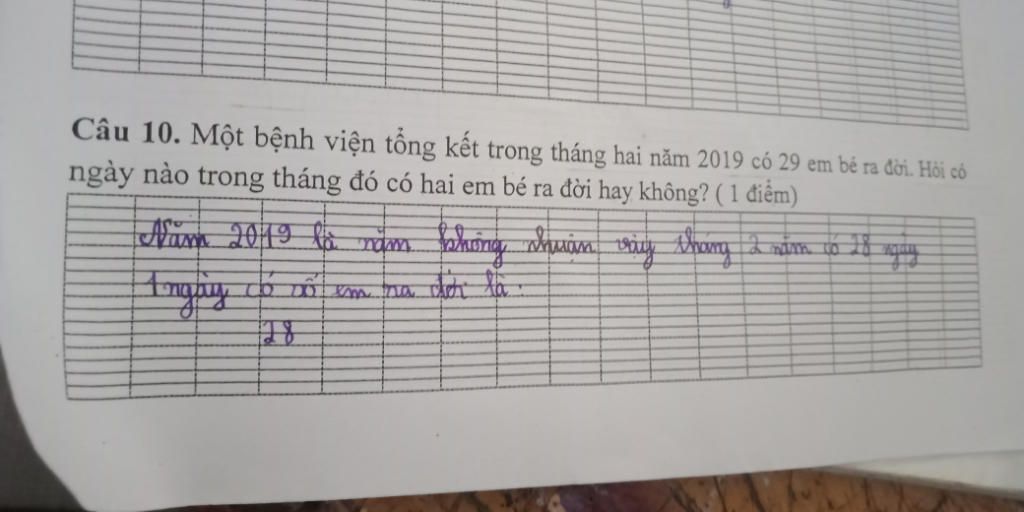 Câu 10. Một bệnh viện tổng kết trong tháng hai năm 2019 có 29 em bé ra đời. Hỏi có
ngày nào trong tháng đó có hai em bé ra đời hay không? ( 1 điểm)
Năm 2019 là năm không nhuận vậy tháng 2 năm có 28 ngày
1 ngày có số em ra đời là :
28